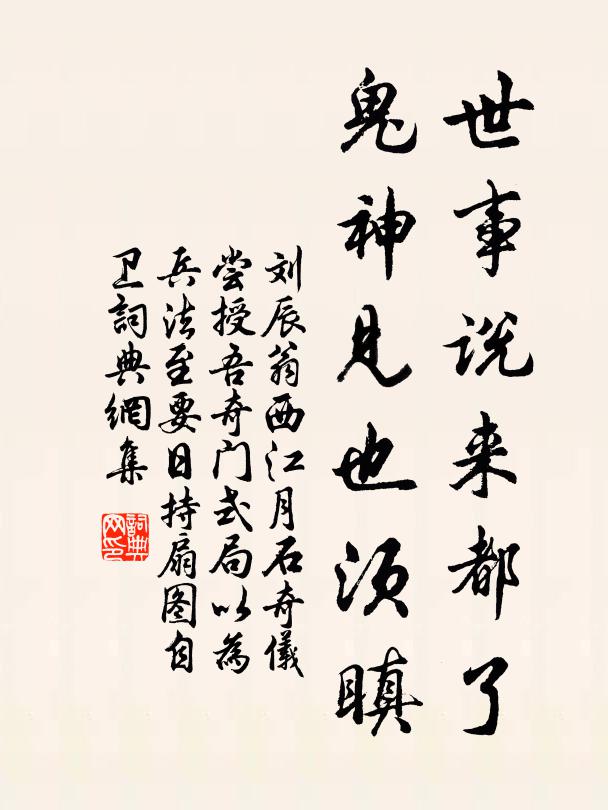 世事说来都了
鬼神见也须瞋
刘辰翁西江月石奇儀
尝授吾奇门式局以為
兵法至要日持扇图自
卫詞典網集
詞典网印